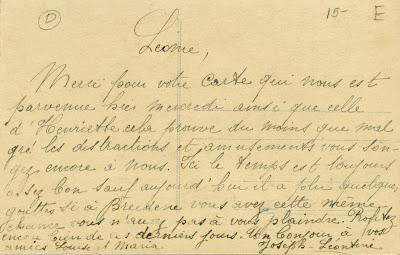 D
15-
E
Leonie,
Merci pour votre carte qui nous est
parvenue hier mercredi ainsi que celle
d'Henriette cela prouve du moins que mal
gré les distractions et amusements vous son-
gez encore à nous. Ici le temps est toujours
assez bon sauf aujourd'hui il a plu quelques
gouttes si à Bredene vous avez cette même
chance vous n'avez pas à vous plaindre. Profitez
encor bien de ces derniers jours. Un bonjour à vos
amies Louise et Maria Joseph-Léontine